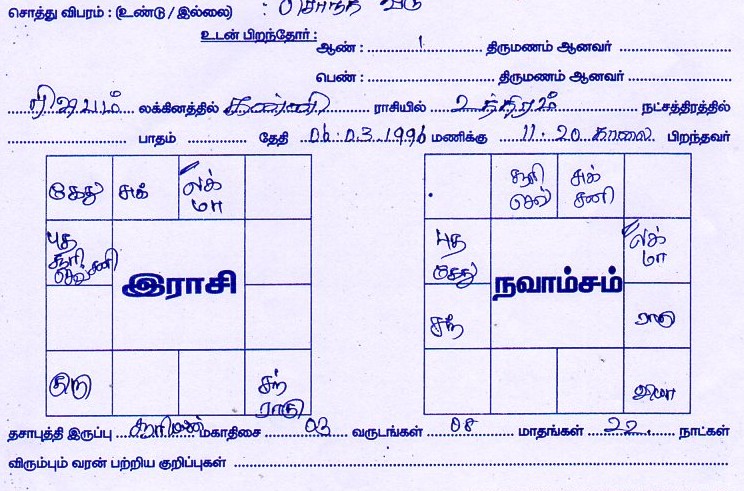 சொத்து விபரம் : (உண்டு / இல்லை) : சொந்த வீடு
உடன் பிறந்தோர் :
ஆண் : 1 திருமணம் ஆனவர்
பெண் : திருமணம் ஆனவர்
ரிஷபம் லக்கினத்தில் கன்னி ராசியில் உத்திரம் நட்சத்திரத்தில்
பாதம் தேதி 06.03.1996 மணிக்கு 11.20 காலை பிறந்தவர்
கேது சுக் லக் மா
புத சூரி செவ் சனி
இராசி
குரு
சந் ராகு
சூரி செவ் சுக் சனி
புத கேது லக் மா
நவாம்சம்
சந் ராகு
தசாபுத்தி இருப்பு சூரியன் மகாதிசை 03 வருடங்கள் 08 மாதங்கள் 22 நாட்கள்
விரும்பும் வரன் பற்றிய குறிப்புகள்